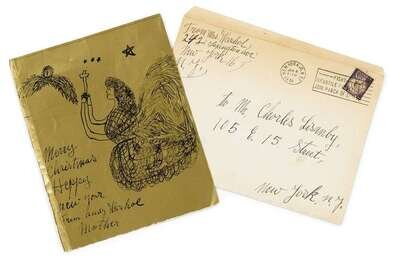 Merry
Christmas
Heppy
new year
from Andy Warhol
Mother
From Mrs Warhol
242 Lexington Ave
New York 16
N.Y.
NEW YORK, N.Y.
FIGHT
INFANTILE
To Mr Charles Lisanby,
105 E. 15 Street,
New York, N.Y.